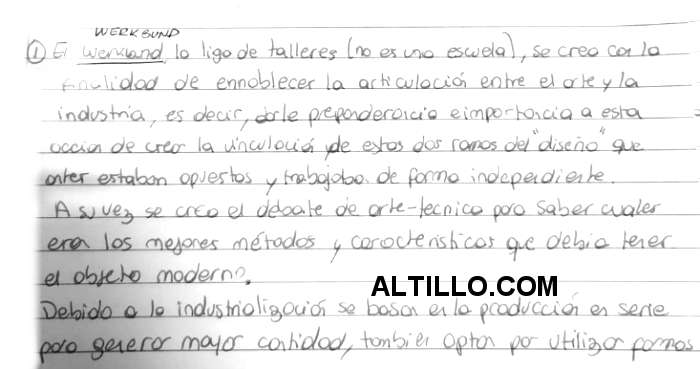 WERKBUND
① El Werkband, la liga de talleres (no es una escuela), se creo con la
finalidad de ennoblecer la articulación entre el arte y la
industria, es decir, darle preponderancia e importancia a esta
accion de crear la vinculación de estos dos ramas del "diseño" que
antes estaban opuestos y trabajaba de forma independiente.
A su vez se creo el debate de arte-tecnica para saber cuales
eran los mejores métodos y caracteristicas que debia tener
el objeto moderno.
ALTILLO.COM
Debido a la industrialización se basan en la producción en serie
para generar mayor cantidad, tambien optan por utilizar formas